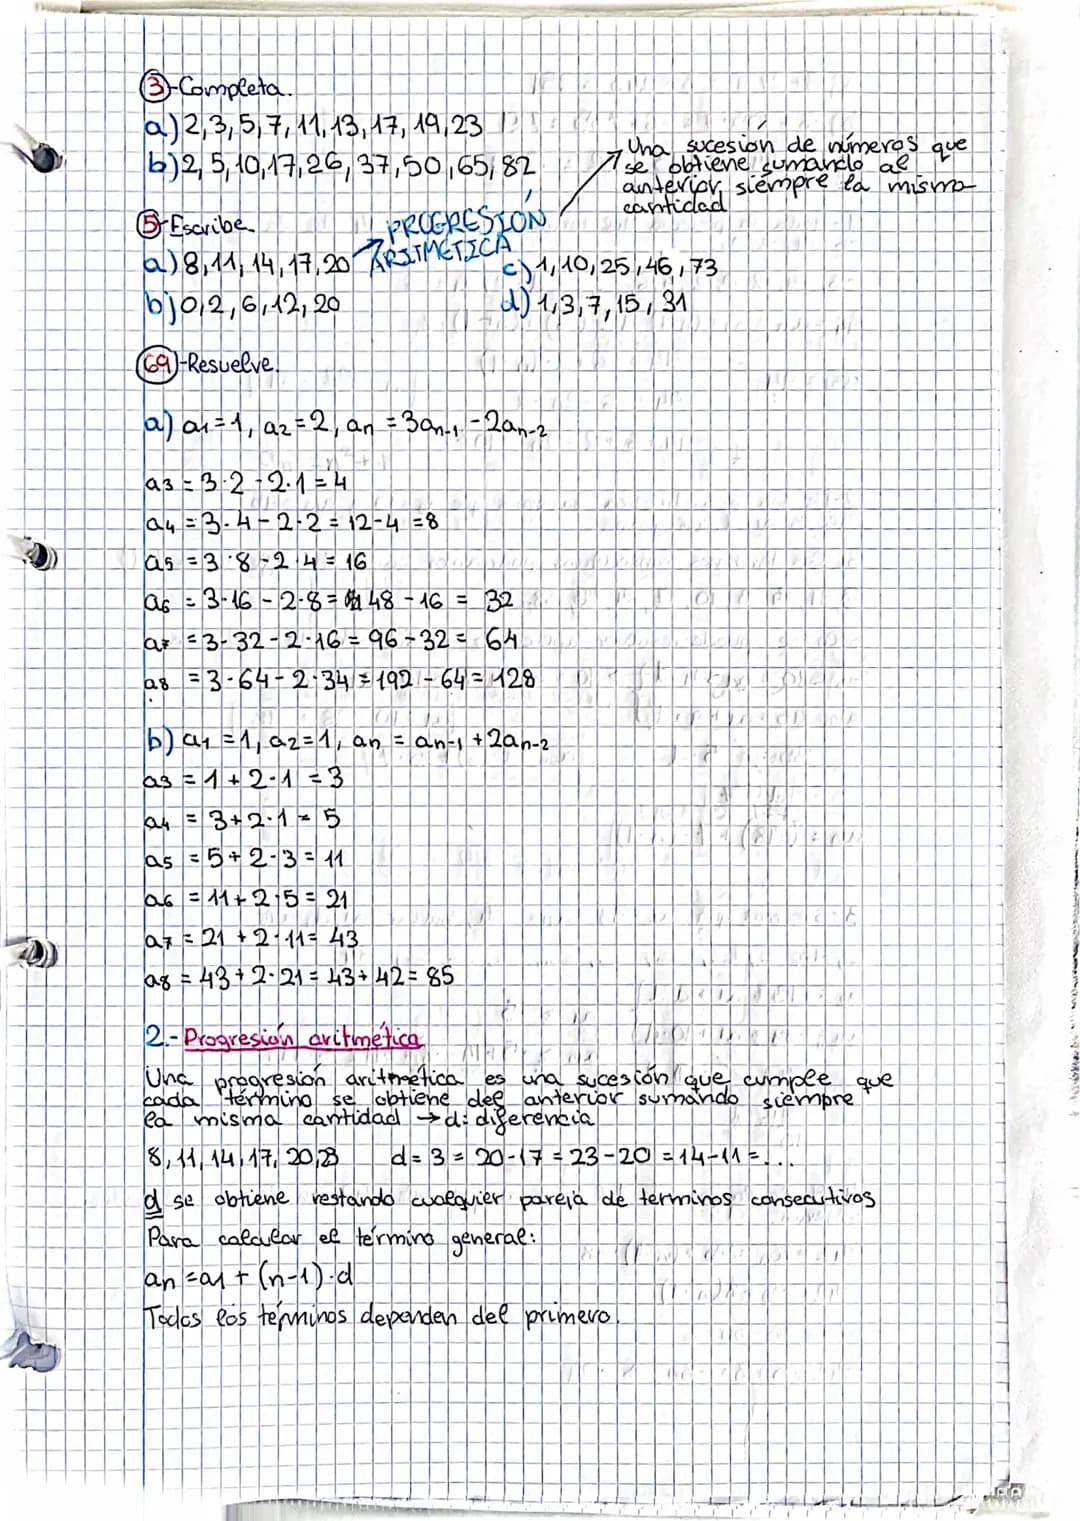 3-Completa.
a) 2, 3, 5, 7, 11, 13, 17, 19, 23
b) 2, 5, 10, 17, 26, 37, 50, 65, 82
Una sucesión de números que
se obtiene sumando al
anterior, siémpre la misma
cantidad
5-Escribe
PROGRESIÓN
ARITMÉTICA
a) 8, 11, 14, 17, 20
c) 1, 10, 25, 46, 73
b) 0, 2, 6, 12, 20
d) 1, 3, 7, 15, 31
69-Resuelve.
a) a1 = 1, a2 = 2, an = 3an-1 - 2an-2
a3 = 3·2 - 2·1 = 4
a4 = 3·4 - 2·2 = 12-4 = 8
a5 = 3·8 - 2·4 = 16
a6 = 3·16 - 2·8 = 48 - 16 = 32
a7 = 3·32 - 2·16 = 96 - 32 = 64
a8 = 3·64 - 2·34 = 192 - 64 = 128
b) a1 = 1, a2 = 1, an = an-1 + 2an-2
a3 = 1 + 2·1 = 3
a4 = 3 + 2·1 = 5
a5 = 5 + 2·3 = 11
a6 = 11 + 2·5 = 21
a7 = 21 + 2·11 = 43
a8 = 43 + 2·21 = 43 + 42 = 85
2.- Progresión aritmética
Una progresión aritmética es una sucesión que cumple que
cada término se obtiene del anterior sumando siempre
la misma cantidad → d: diferencia
8, 11, 14, 17, 20, 23 d = 3 = 20-17 = 23-20 = 14-11 = ...
d se obtiene restando cualquier pareja de terminos consecutivos
Para calcular el término general:
an = a1 + (n-1)·d
Todos los términos dependen del primero.